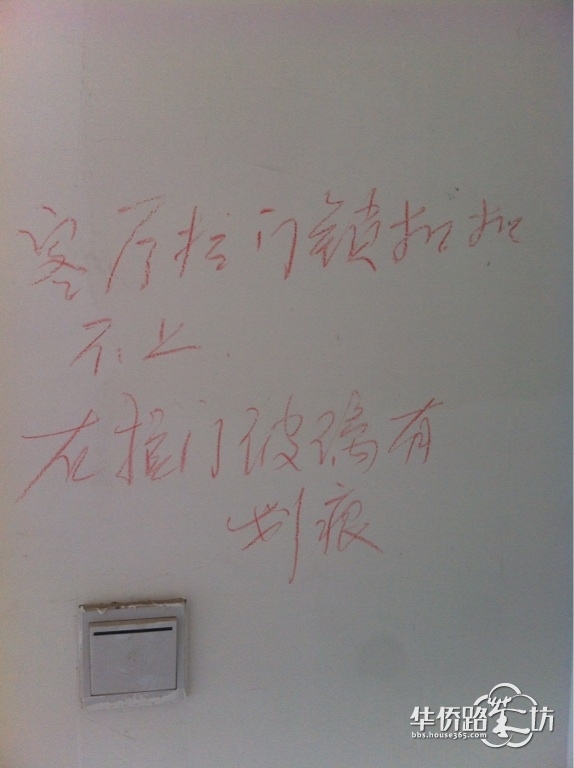 客厅拉门锁扣扣
不上.
左推门玻璃有
划痕
华侨路茶坊
bbs.house365.com